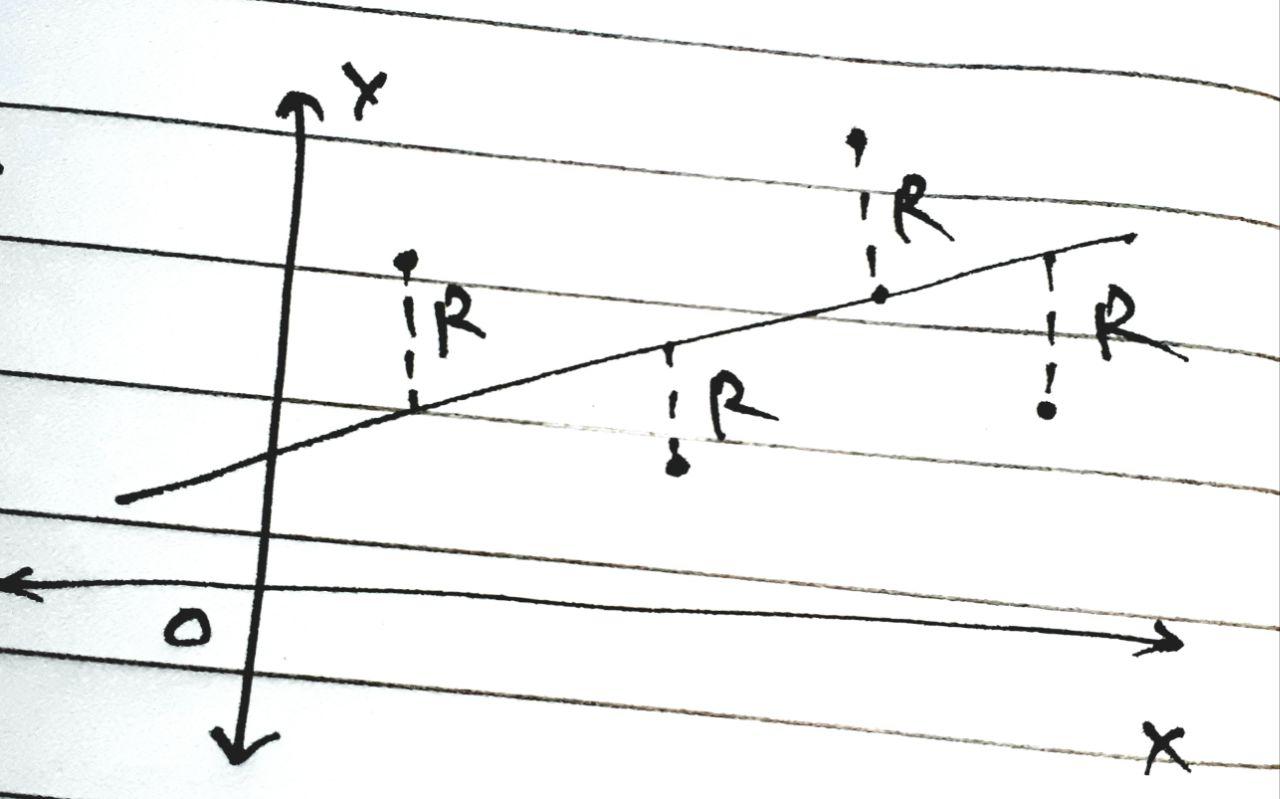 Y
R
R
R
R
O
X